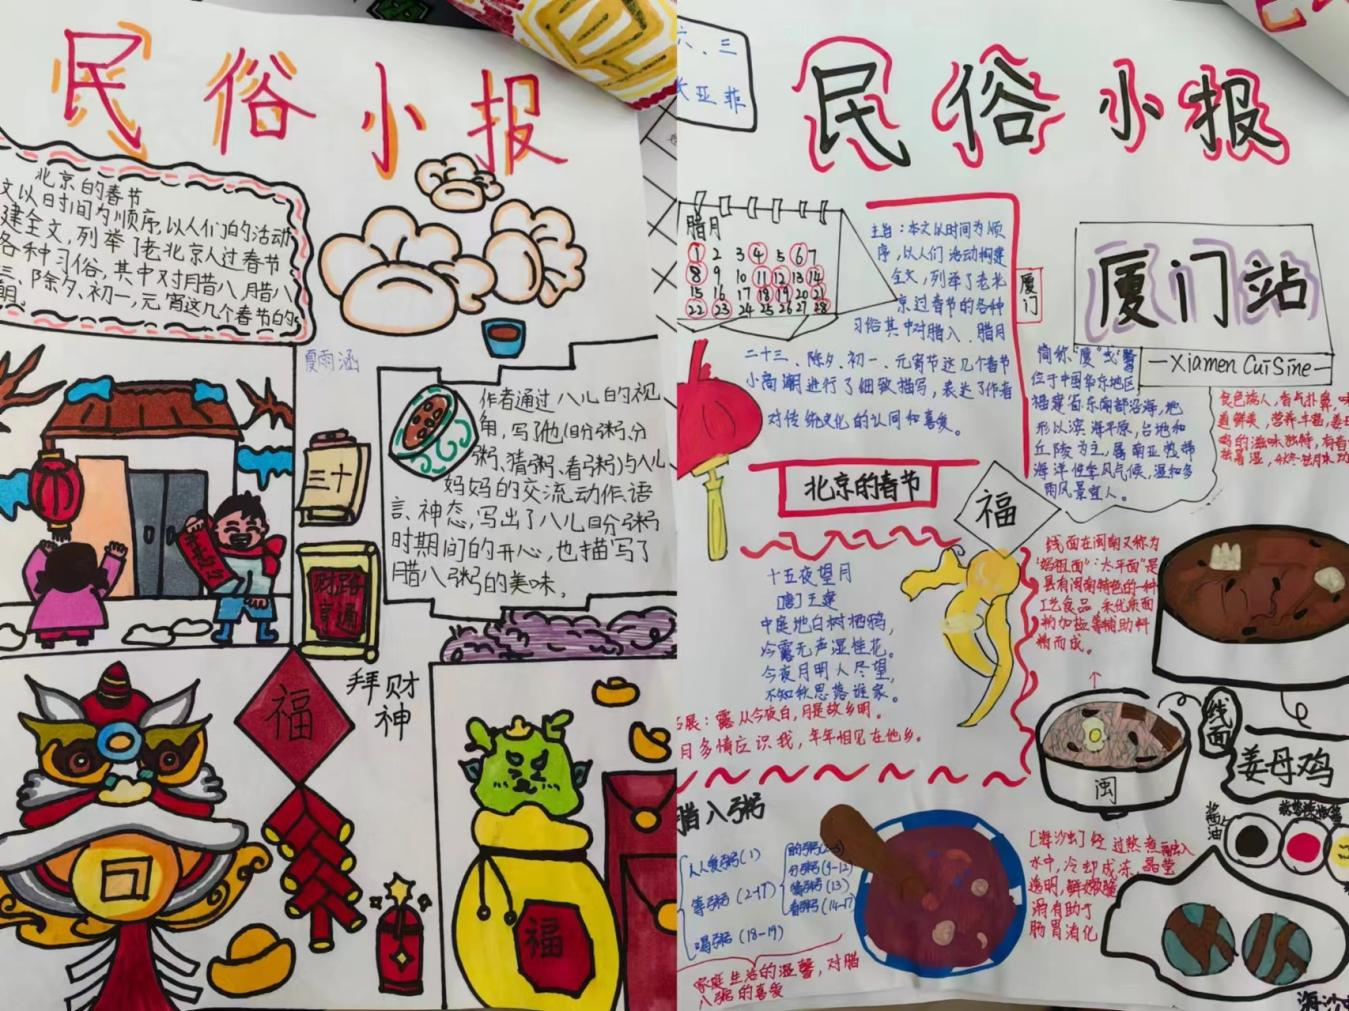 民俗小报
北京的春节
文以日时间为顺序,以人们的活动
建全文,列举了老北京人过春节
各种习俗,其中对腊八腊八
三、除夕、初一,元宵这几个春节的
夏雨涵
作者通过八儿的视
角,写了他(盼粥、分
粥、猜粥、看粥)与八儿
妈妈的交流动作、语
言、神态,写出了八儿盼粥
时期间的开心,也描写了
腊八粥的美味.
三十
财路
亨通
福
拜财
神
福
六、三
亚菲
民俗小报
腊月
1 2 3 4 5 6 7
8 9 10 11 12 13 14
15 16 17 18 19 20 21
22 23 24 25 26 27 28
主旨:本文以时间为顺
序,以人们活动构建
全文,列举了老北
京过春节的各种
习俗其中对腊八 腊月
二十三、除夕、初一、元宵节这几个春节
小高潮进行了细致描写,表达了作者
对传统文化的认同和喜爱。
厦门
北京的春节
福
十五夜望月
[唐]王建
中庭地白树栖鸦,
冷露无声湿桂花。
今夜月明人尽望,
不知秋思落谁家。
展:露从今夜白,月是故乡明。
月多情应识我,年年相见在他乡。
腊八粥
人人爱粥(1)
等粥(2-17)
喝粥(18-19)
分粥(9-12)
猜粥(13)
看粥(14-17
家庭生活的温馨,对腊
八粥的喜爱
厦门站
Xiamen Cuisine
简称"厦"或"鹭
位于中国华东地区
福建省东南部沿海,地
形以滨海平原,台地和
丘陵为主,属南亚热带
海洋性季风气候,温和多
雨风景宜人。
线面在闽南又称为
"妈祖面""太平面"是
具有闽南特色的一种
工艺食品 采优质面
粉加盐等辅助料
精而成。
线面
闽
姜母鸡
酱油
[海沙虫]经过熬煮融入
水中,冷却成冻,晶莹
透明,鲜嫩脆
滑有助于
肠胃消化